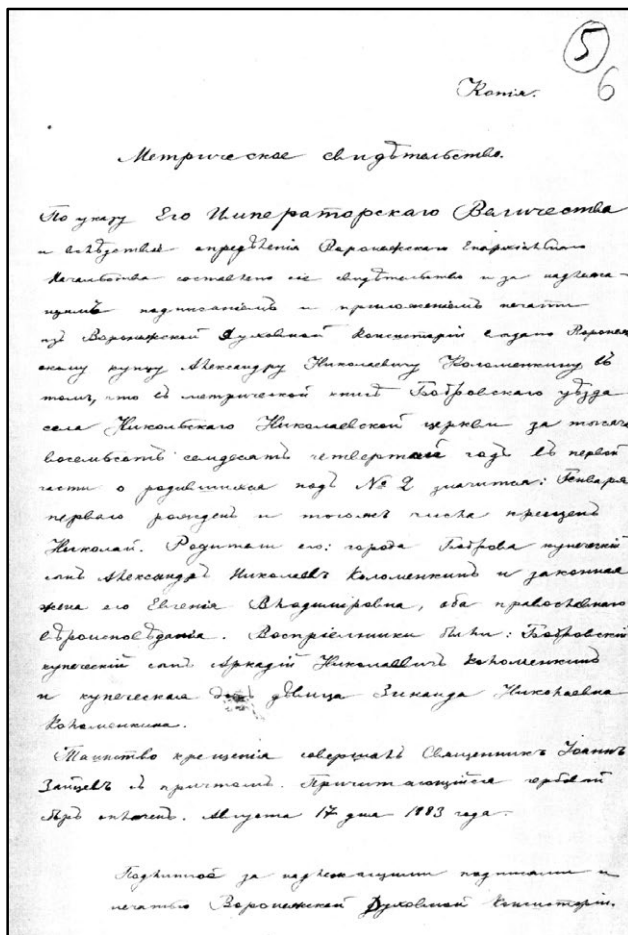 5
6
Копія.
Метрическое свидѣтельство.
По указу Его Императорскаго Величества
и вслѣдствіе опредѣленія Воронежскаго Епархіальнаго
Начальства составлено сіе свидѣтельство и за надлежа-
щимъ подписаніемъ и приложеніемъ печати
изъ Воронежской Духовной Консисторіи выдано Воронеж
скому купцу Александру Николаевичу Коломенкину въ
томъ, что въ метрической книгѣ Бобровскаго уѣзда
села Никольскаго Николаевской церкви за тысяча
восемьсотъ семдесятъ четвертый годъ въ первой
части о родившихся подъ № 2 значится: Генваря
перваго рожденъ и тогожъ числа крещенъ
Николай. Родители его: города Боброва купеческій
сынъ Александръ Николаевъ Коломенкинъ и законная
жена его Евгенія Владиміровна, оба православнаго
вѣроисповѣданія. Воспріемники были: Бобровскій
купеческій сынъ Аркадій Николаевичъ Коломенкинъ
и купеческая дочь дѣвица Зинаида Николаевна
Коломенкина.
Таинство крещенія совершалъ Священникъ Іоаннъ
Зайцевъ съ причтомъ. Причитающійся гербовый
сборъ оплаченъ. Августа 17 дня 1883 года.
Подлинное за надлежащими подписями и
печатью Воронежской Духовной Консисторіи.